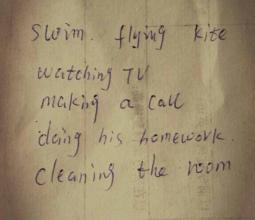 swim. flying kite
watching TV
making a call
doing his homework.
cleaning the room